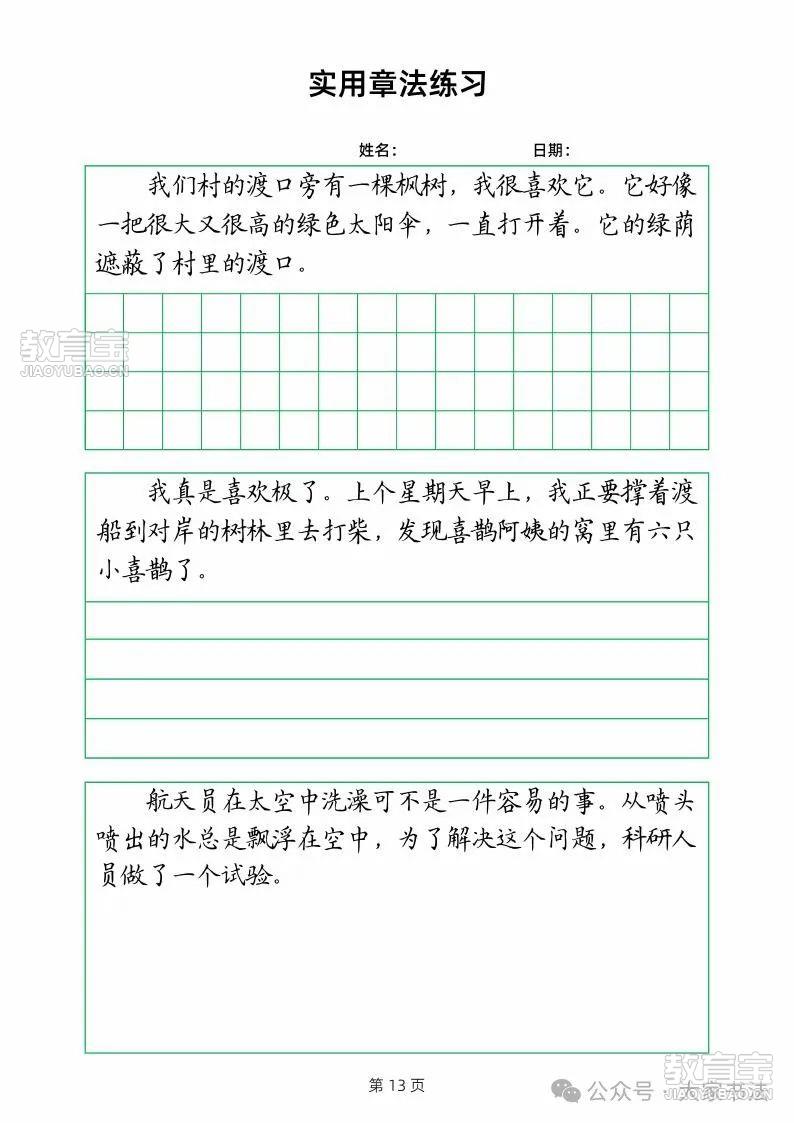 实用章法练习
姓名：
日期：
我们村的渡口旁有一棵枫树，我很喜欢它。它好像
一把很大又很高的绿色太阳伞，一直打开着。它的绿荫
遮蔽了村里的渡口。
教育宝
JIAOYUBAO.CN
我真是喜欢极了。上个星期天早上，我正要撑着渡
船到对岸的树林里去打柴，发现喜鹊阿姨的窝里有六只
小喜鹊了。
航天员在太空中洗澡可不是一件容易的事。从喷头
喷出的水总是飘浮在空中，为了解决这个问题，科研人
员做了一个试验。
第 13 页
教育宝
JIAOYUBAO.CN
公众号 · 大家书法